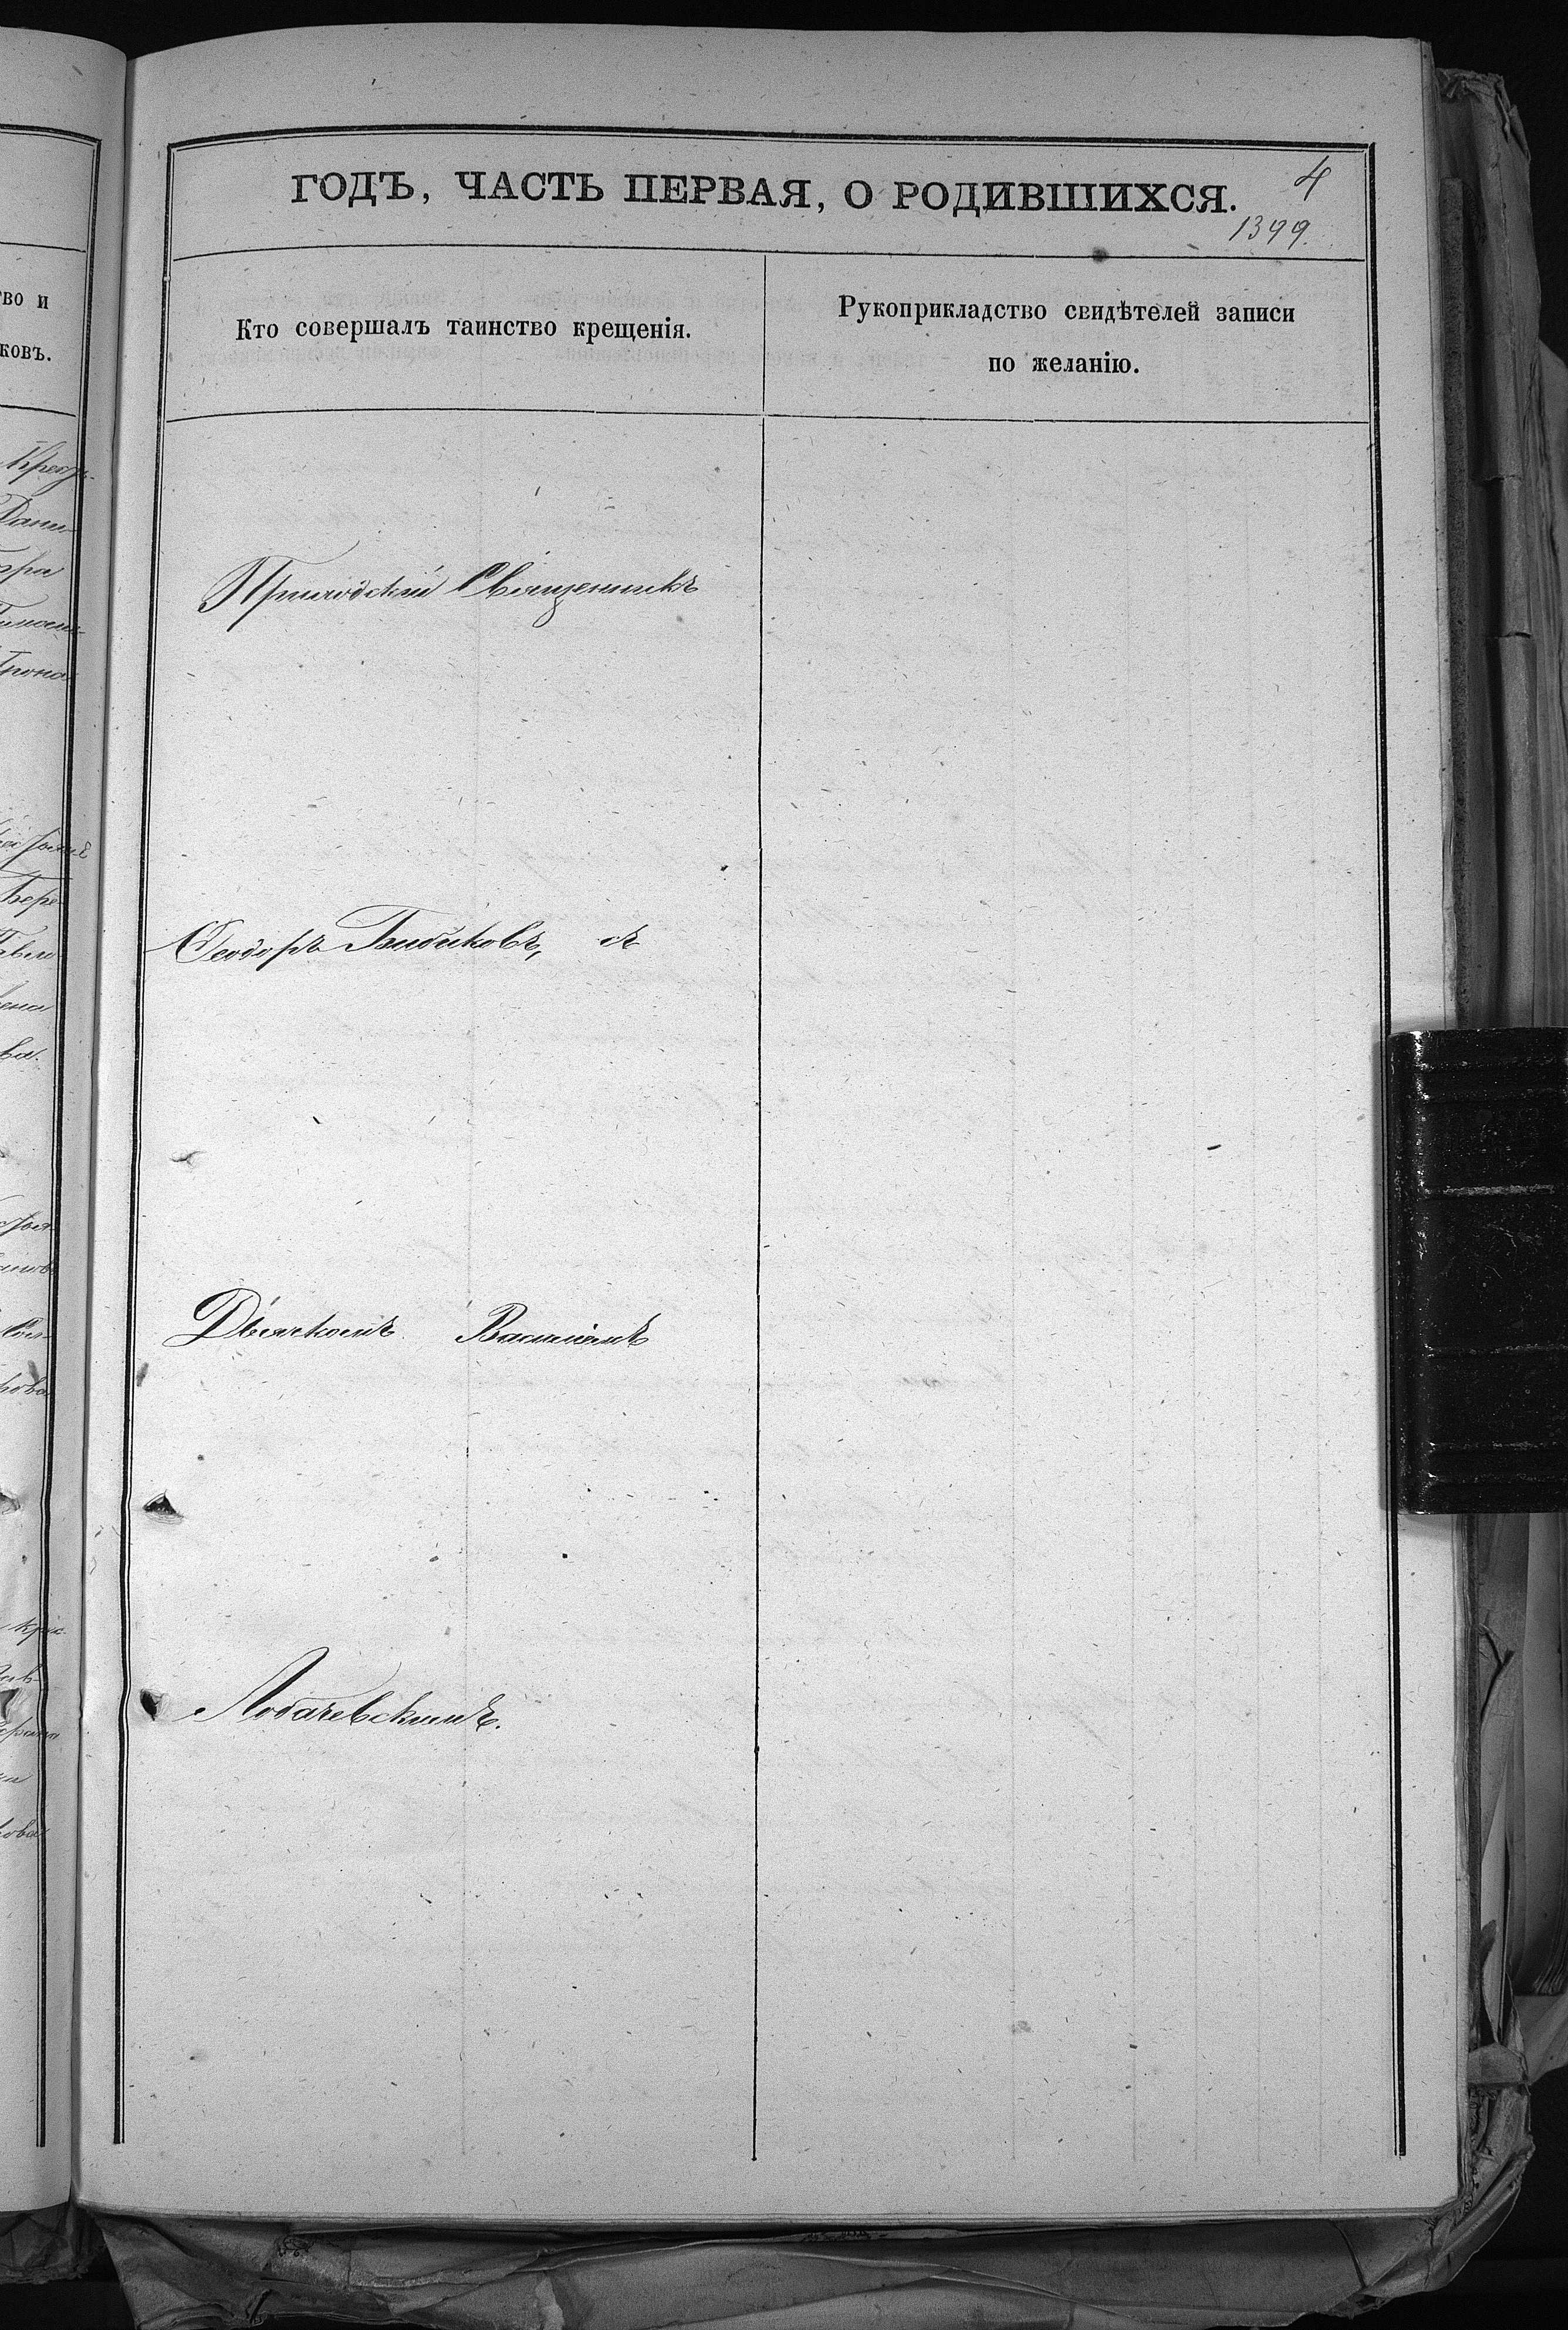 ГОДЪ, ЧАСТЬ ПЕРВАЯ, О РОДИВШИХСЯ.
4
1399.
Кто совершалъ таинство крещенія.
Рукоприкладство свидѣтелей записи
по желанію.
Приходскій Священникъ
Ѳеодоръ Бибиковъ, съ
Дьячкомъ Василіемъ
Лобачевскимъ.